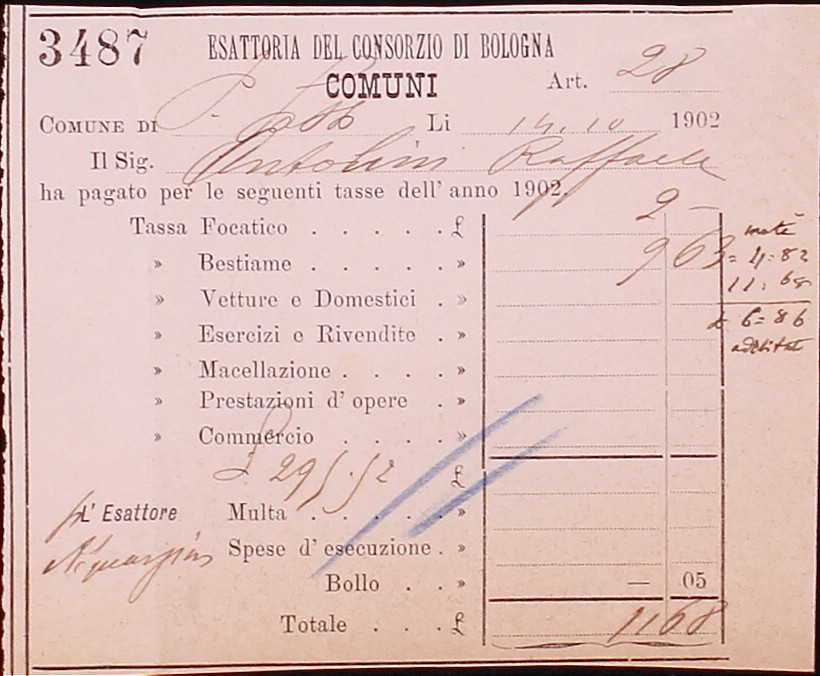 3487 ESATTORIA DEL CONSORZIO DI BOLOGNA
COMUNI Art. 28
COMUNE DI Li 14.10 1902
Il Sig. Antolini Raffaele
ha pagato per le seguenti tasse dell' anno 1902.
Tassa Focatico . . . . . £ 2 —
» Bestiame . . . . . » 9 63 metà = 4=82
» Vetture e Domestici . » 11:68
» Esercizi e Rivendite . » £ 6=86
» Macellazione . . . . »
» Prestazioni d' opere . »
» Commercio . . . . »
£
L' Esattore Multa . . . . . »
Spese d' esecuzione . »
Bollo . . » — 05
Totale . . . £ 11 68